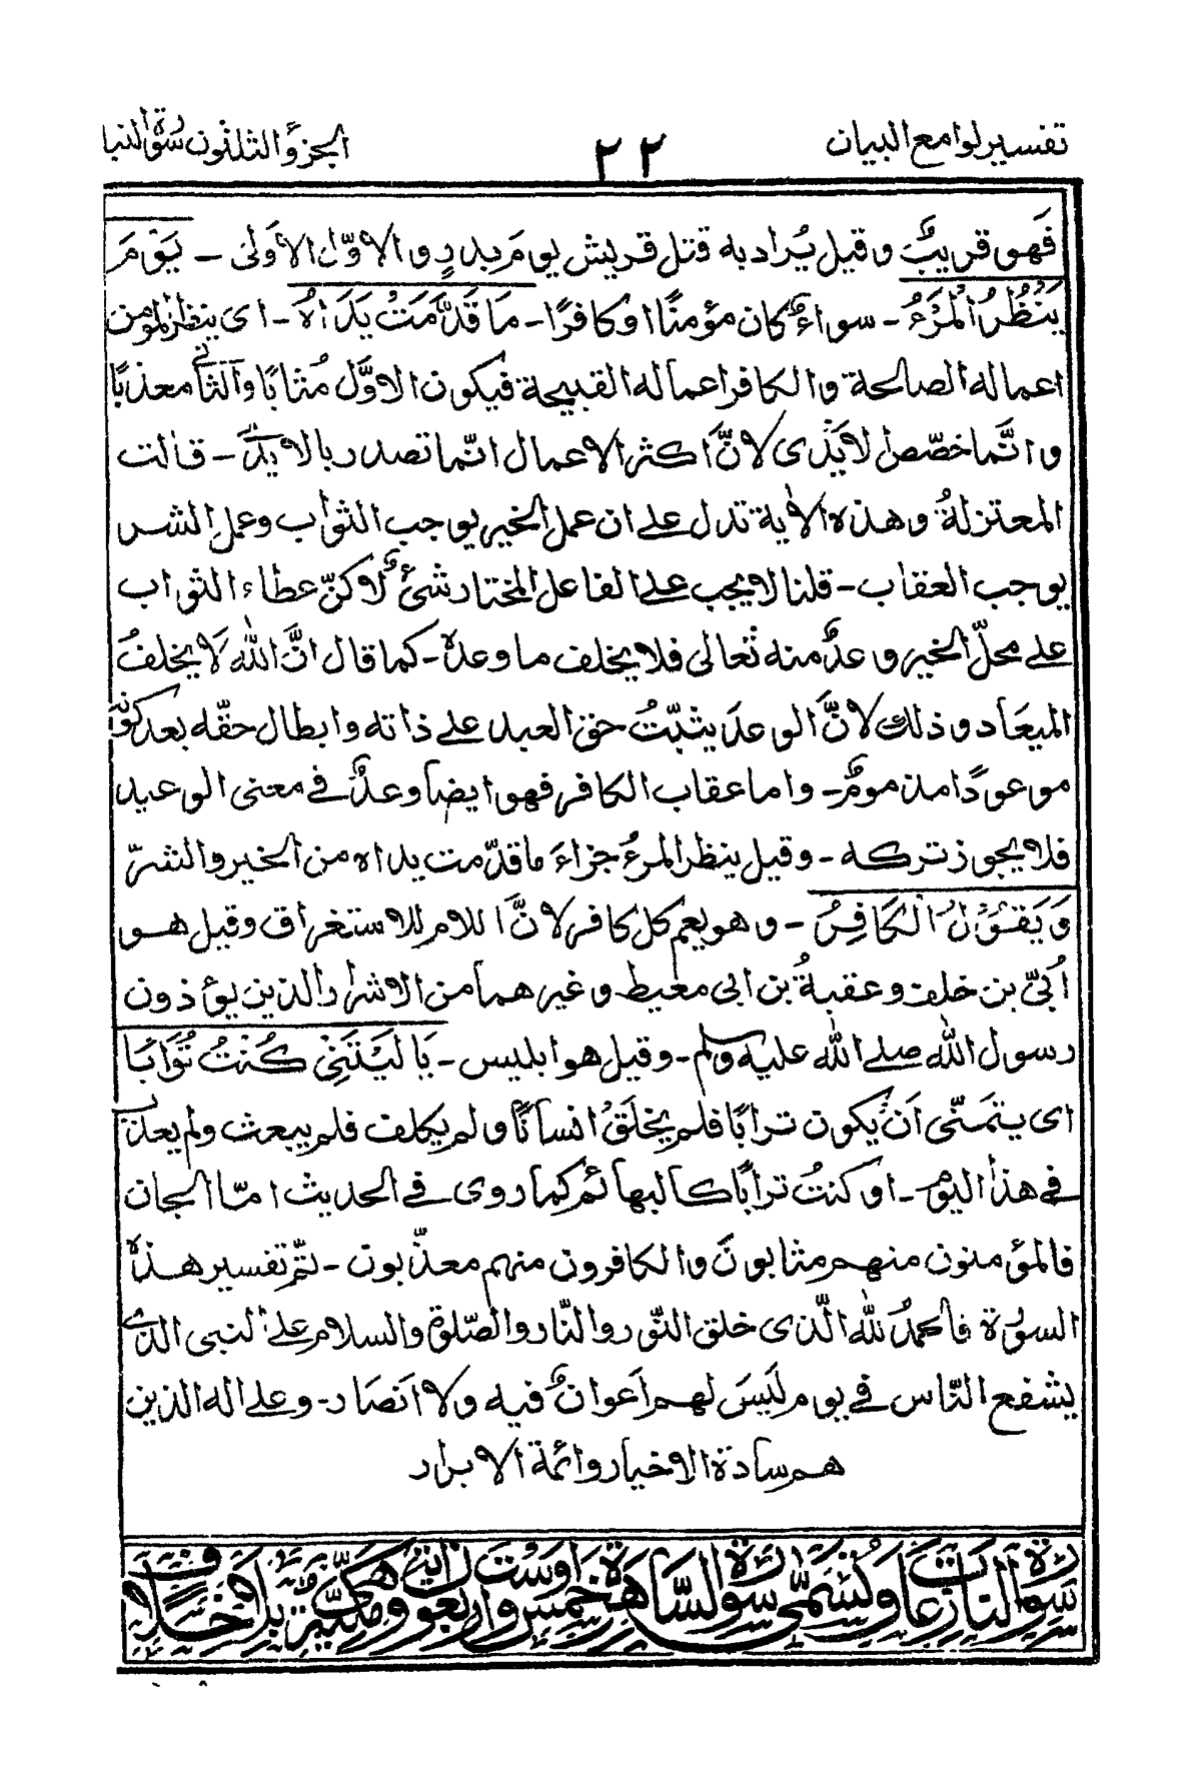 تفسير لوامع البيان
٢٢
الجزؤ الثلثون سورة النبا
فَهو قريبٌ وقيل يُراد به قتل قريش يومَ بدرٍ والاوّل الاَولىٰ – يَوْمَ
يَنْظُرُ الْمَرْءُ – سواءٌ كان مؤمنًا او كافرًا – مَا قَدَّمَتْ يَدَاهُ – اى ينظر المؤمن
اعماله الصالحة والكافر اعماله القبيحة فيكون الاوّل مُثابًا والثانى معذبًا
وانّما خصّص الاَيدى لانَّ اكثر الاعمال انّما تصدر بالايدى – قالت
المعتزلةُ وهذه الاٰية تدل على ان عمل الخير يوجب الثواب وعمل الشر
يوجب العقاب – قلنا لا يجب على الفاعل المختار شئٌ لاكنّ عطاء الثواب
على محلّ الخير وعدٌ منه تعالى فلا يخلف ما وعده – كما قال انَّ الله لَا يخلفُ
الميعَاد وذلك لانَّ الوعدَ يثبّتُ حق العبد على ذاته وابطال حقّه بعد كونه
موعودًا مذمومٌ – واما عقاب الكافر فهو ايضا وعدٌ فى معنى الوعيد
فلا يجوز تركه – وقيل ينظر المرءُ جزاءَ ما قدّمت يداه من الخير والشرّ
وَيَقُوْلُ الْكَافِرُ – وهو يعم كل كافر لانَّ اللام للاستغراق وقيل هو
اُبىّ بن خلف وعقبةُ بن ابى معيط وغيرهما من الاشرار الذين يؤذون
رسول الله صلى الله عليه وسلم – وقيل هو ابليس – يَا لَيْتَنِىْ كُنْتُ تُرَابًا
اى يتمنّى اَن يكون ترابًا فلم يخلَقْ انسانًا ولم يكلف فلم يبعث ولم يعذب
فى هذا اليوم – او كنتُ ترابًا كالبهائم كما روى فى الحديث امّا الجان
فالمؤمنون منهم مثابونَ والكافرون منهم معذّبون – تمّ تفسير هذه
السورة فالحمدُ لله الّذى خلق النّور والنّار والصّلوة والسلام على النبى الذى
يشفع النّاس فى يوم لَيسَ لهم اَعوانٌ فيه ولا اَنصَار – وعلى اله الذين
هم سادة الاخيار وائمة الابرار
سورة النازعات وتُسَمّٰى سورة السَّاهرة خمس واربعون اوست اية وهى مكيّة بلاخلاف